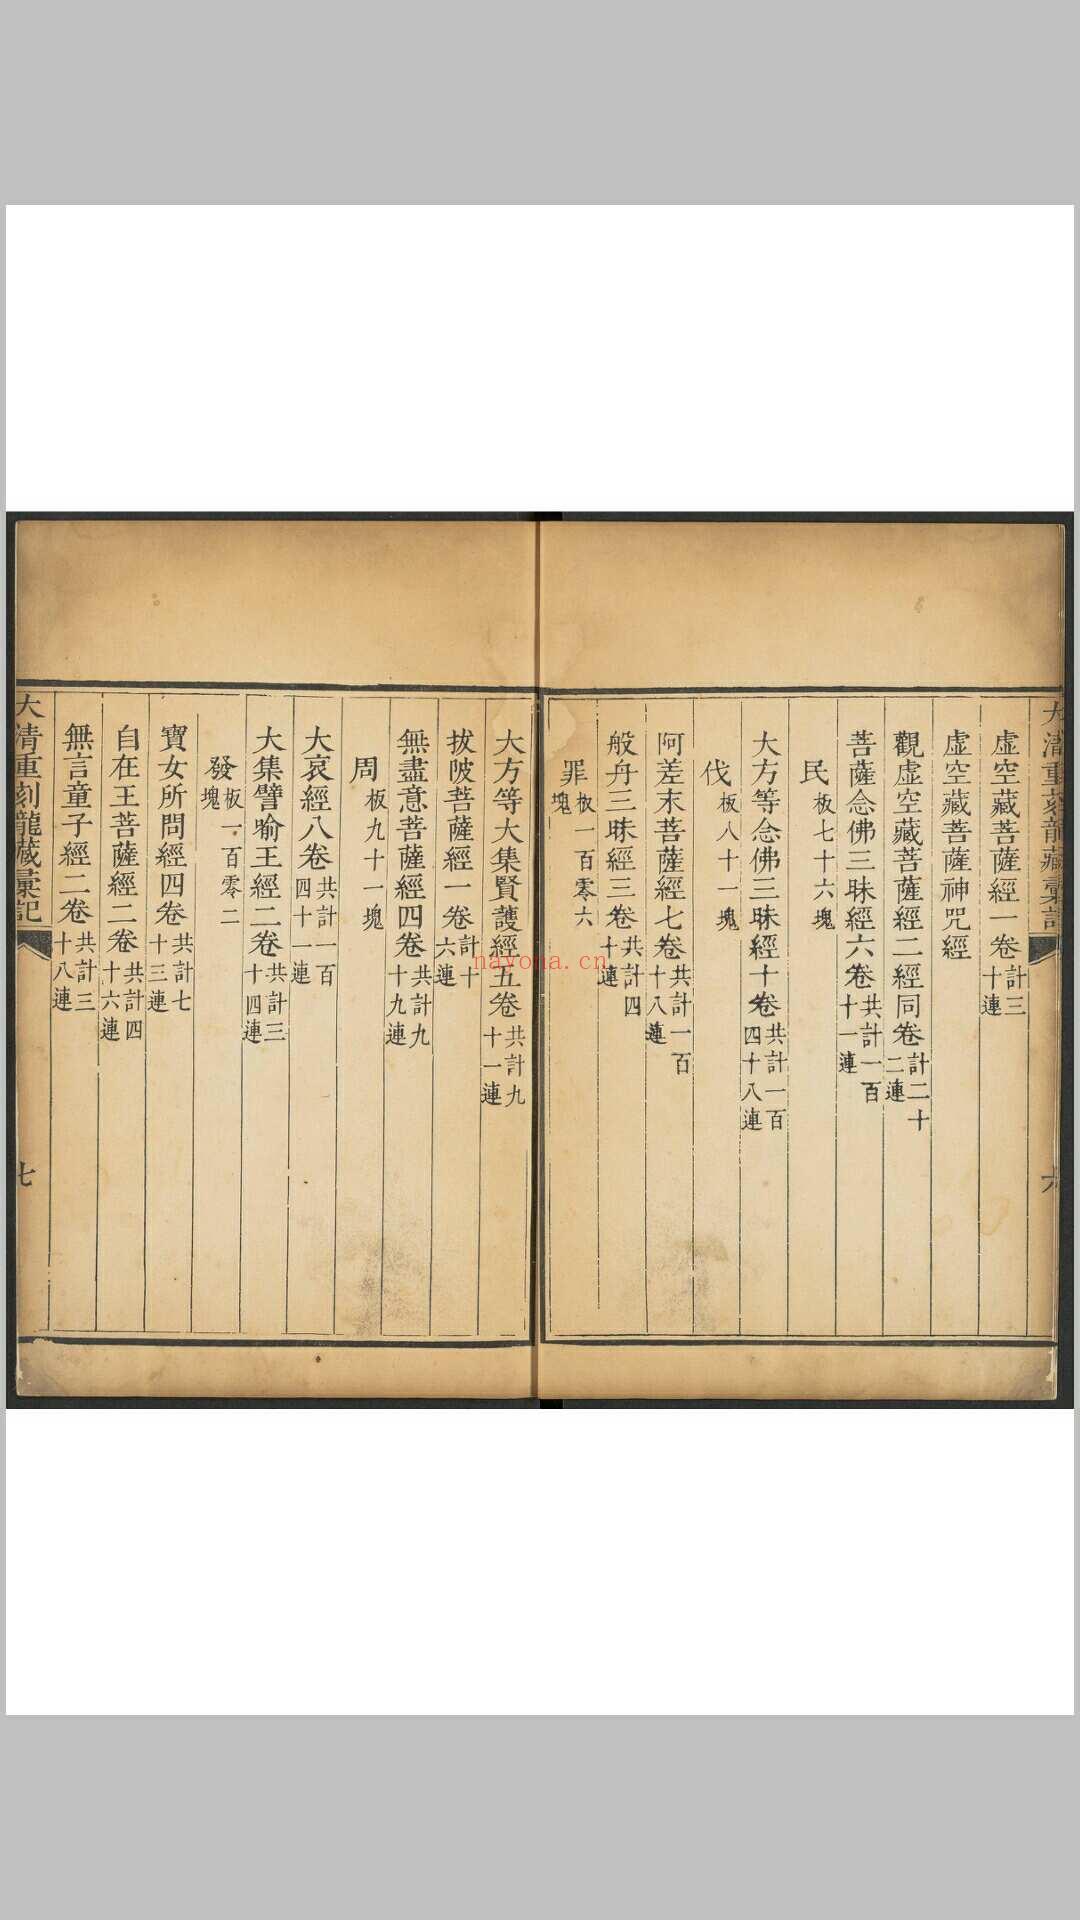 大清重刻龍藏彙記
虛空藏菩薩經一卷計三十連
虛空藏菩薩神咒經
觀虛空藏菩薩經二經同卷計二十二連
菩薩念佛三昧經六卷共計一百十一連
民板七十六塊
大方等念佛三昧經十卷共計一百四十八連
伐板八十一塊
阿差末菩薩經七卷共計一百十八連
般舟三昧經三卷共計四十連
罪板一百零六塊
六
大方等大集賢護經五卷共計九十一連
拔陂菩薩經一卷計十六連
無盡意菩薩經四卷共計九十九連
周板九十一塊
大哀經八卷共計一百四十一連
大集譬喻王經二卷共計三十四連
發板一百零二塊
寶女所問經四卷共計七十三連
自在王菩薩經二卷共計四十六連
無言童子經二卷共計三十八連
大清重刻龍藏彙記
七
nayona.cn